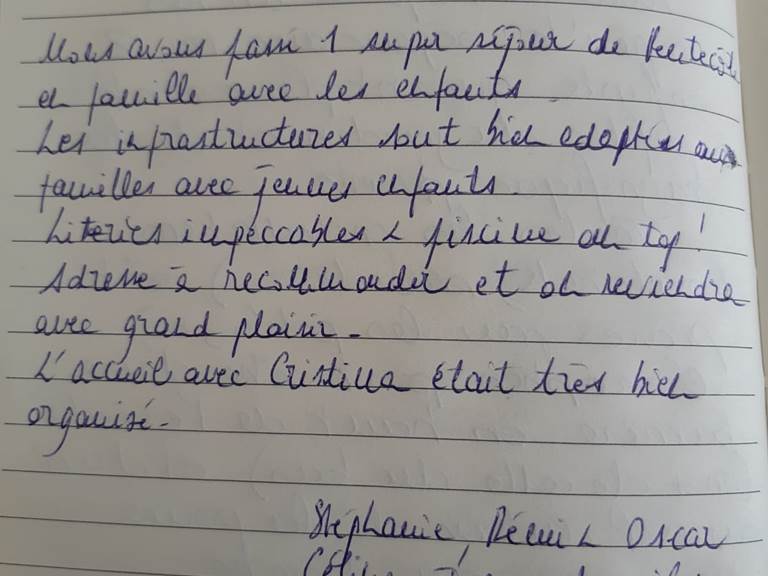 Nous avons passé 1 super séjour de Pentecôte
en famille avec les enfants
Les infrastructures sont bien adaptées aux
familles avec jeunes enfants.
Literies impeccables & piscine au top!
Adresse à recommander et on reviendra
avec grand plaisir.
L'accueil avec Cristina était très bien
organisé.
Stéphanie, Rémi & Oscar